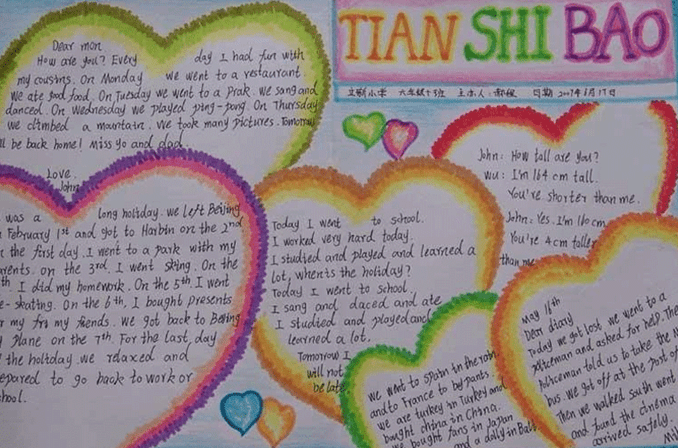 TIAN SHI BAO
文刚小学 六年级十3班 主办人: 日期 2007年6月17日
Dear mon
How are you? Every day I had fun with
my cousins. On Monday we went to a restaurant.
We ate good food. On Tuesday we went to a prak. We sang and
danced. On Wednesday we played ping-pong. On Thursday
we climbed a mountain. We took many pictures. Tomorrow
ll be back home! Miss yo and dad.
Love.
John
was a long holiday. we left Beijing
February 1st and got to Harbin on the 2nd
the first day. I went to a park with my
arents. on the 3rd. I went sking. On the
th. I did my homework. On the 5th. I went
e-skating. On the 6th, I bought presents
r my fri my friends. We got back to Beijing
plane on the 7th. For the last day
the holtday. we rdaxed and
epared to go back to work or
chool.
Today I went to school.
I worked very hard today.
I studied and played and learned a
lot, when's the holiday?
Today I went to school
I sang and daced and ate
I studied and played and
learned a lot.
Tomorrow I
will not
be late
John: How tall are you?
wu: I'm 164 cm tall.
You're shorter than me.
John: Yes. I'm 160 cm
You're 4 cm taller
than me
We went to spain in the rain
and to France to by pants
we are turkey in Turkey and
bught china in China.
We bought fans in Japan
and a dolly in Bali
May 18th
Dear diary
Today we got lost. we went to a
policeman and asked for help. The
policeman told us to take the
bus. we got off at the post of
Then we walked south went
and fund the cinema
arrived safoly.